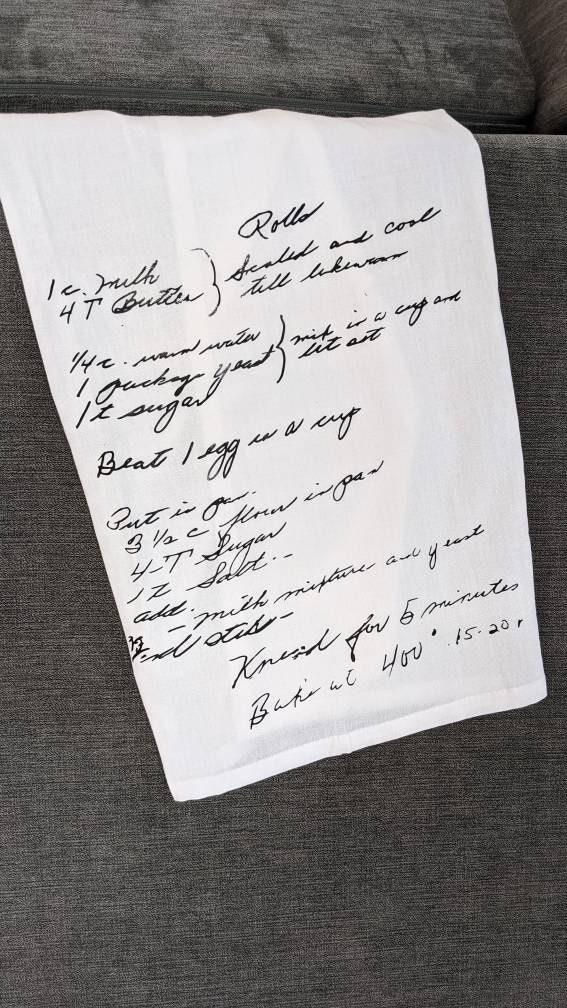 Rolls
1 c. milk } Scaled and cool
4 T Butter till lukewarm
1/4 c. warm water } mix in a cup and
1 package yeast let set
1 t sugar
Beat 1 egg in a cup
Put in pan.
3 1/2 c flour in pan
4 T Sugar
1 t Salt.
add. - milk mixture and yeast
and
Knead for 5 minutes
Bake at 400° 15-20.